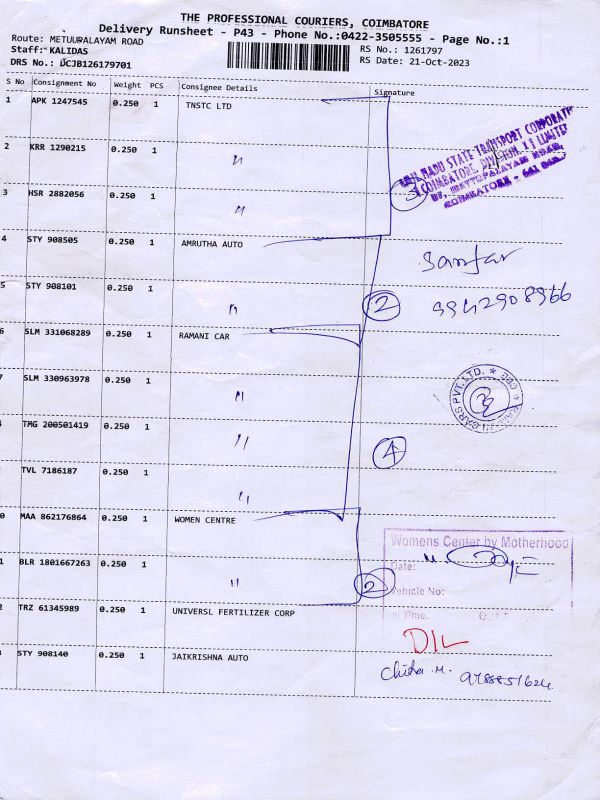 THE PROFESSIONAL COURIERS, COIMBATORE
Delivery Runsheet - P43 - Phone No.:0422-3505555 - Page No.:1
Route: METUURALAYAM ROAD
RS No.: 1261797
Staff: KALIDAS
RS Date: 21-Oct-2023
DRS No.: DCJB126179701
S No Consignment No Weight PCS Consignee Details Signature
1 APK 1247545 0.250 1 TNSTC LTD
2 KRR 1290215 0.250 1 "
3 HSR 2882056 0.250 1 "
3
TAMIL NADU STATE TRANSPORT CORPORATION
COIMBATORE, DIVISION
COIMBATORE - 641
4 STY 908505 0.250 1 AMRUTHA AUTO
5 STY 908101 0.250 1 "
2
9942908966
6 SLM 331068289 0.250 1 RAMANI CAR
7 SLM 330963978 0.250 1 "
CARS PVT. LTD. * CBE *
TMG 200501419 0.250 1 "
4
TVL 7186187 0.250 1 "
0 MAA 862176864 0.250 1 WOMEN CENTRE
Womens Center by Motherhood
Date:
1 BLR 1801667263 0.250 1 "
2
Vehicle No:
2 TRZ 61345989 0.250 1 UNIVERSL FERTILIZER CORP
In Time: OUT
D/L
STY 908140 0.250 1 JAIKRISHNA AUTO
Chitra .M.